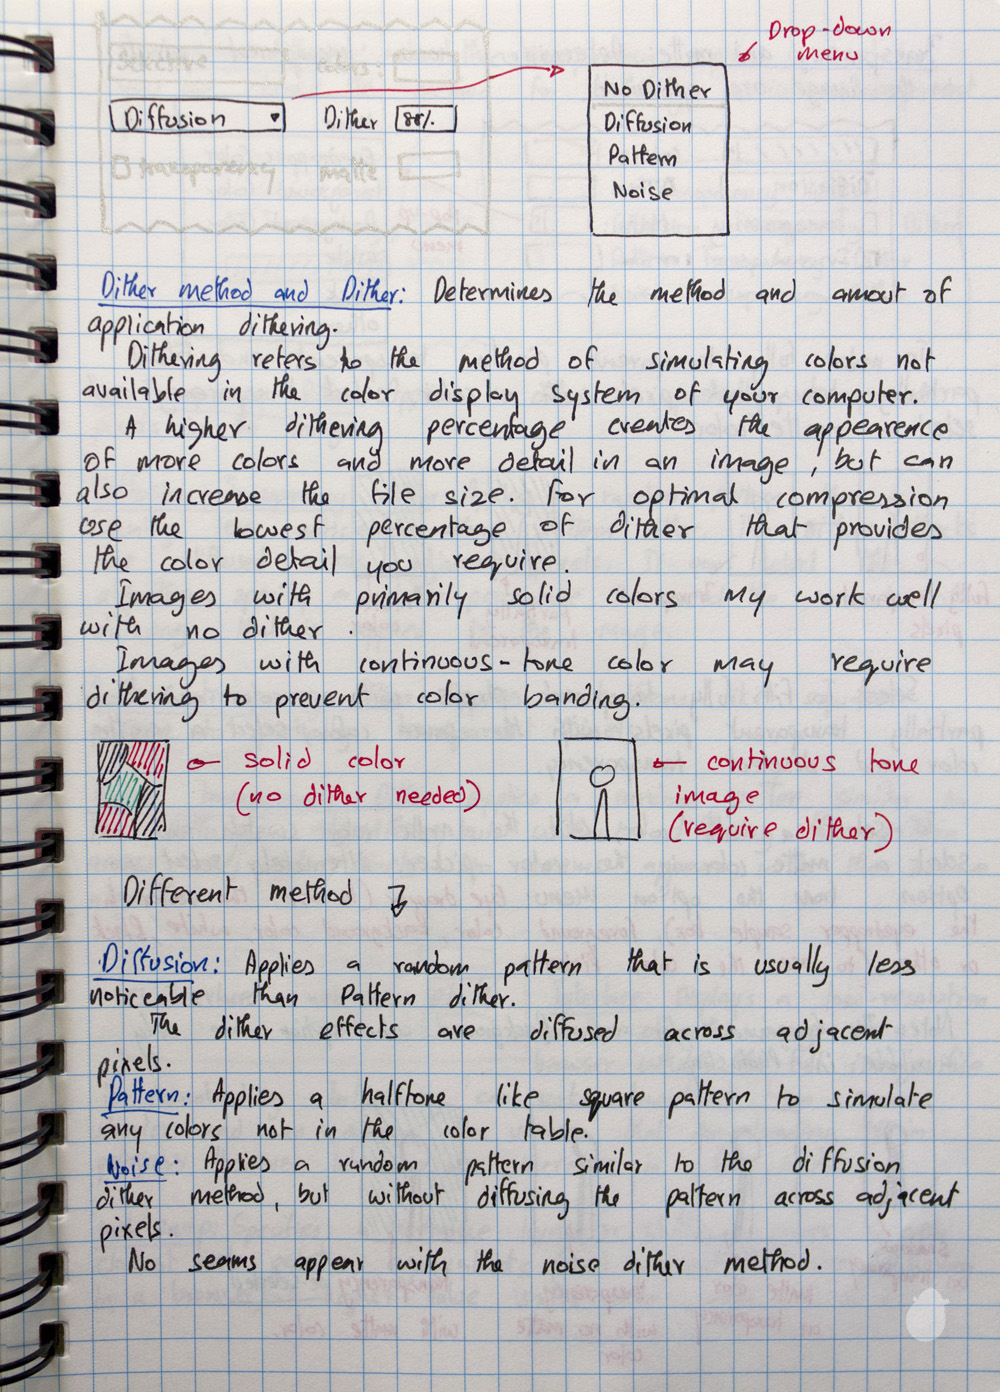 Drop-down
menu
Selective
colors:
No Dither
Diffusion Dither 88%
Diffusion
Pattern
transparency matte
Noise
Dither method and Dither: Determines the method and amout of
application dithering.
Dithering reters to the method of simulating colors not
available in the color display system of your computer.
A higher dithering percentage creates the appearence
of more colors and more detail in an image, but can
also increase the file size. For optimal compression
use the lowest percentage of dither that provides
the color detail you require.
Images with primarily solid colors my work well
with no dither.
Images with continuous-tone color may require
dithering to prevent color banding.
solid color
(no dither needed)
continuous tone
image
(require dither)
Different method
Diffusion: Applies a random pattern that is usually less
noticeable than Pattern dither.
The dither effects are diffused across adjacent
pixels.
Pattern: Applies a halftone like square pattern to simulate
any colors not in the color table.
Noise: Applies a random pattern similar to the diffusion
dither method, but without diffusing the pattern across adjacent
pixels.
No seams appear with the noise dither method.